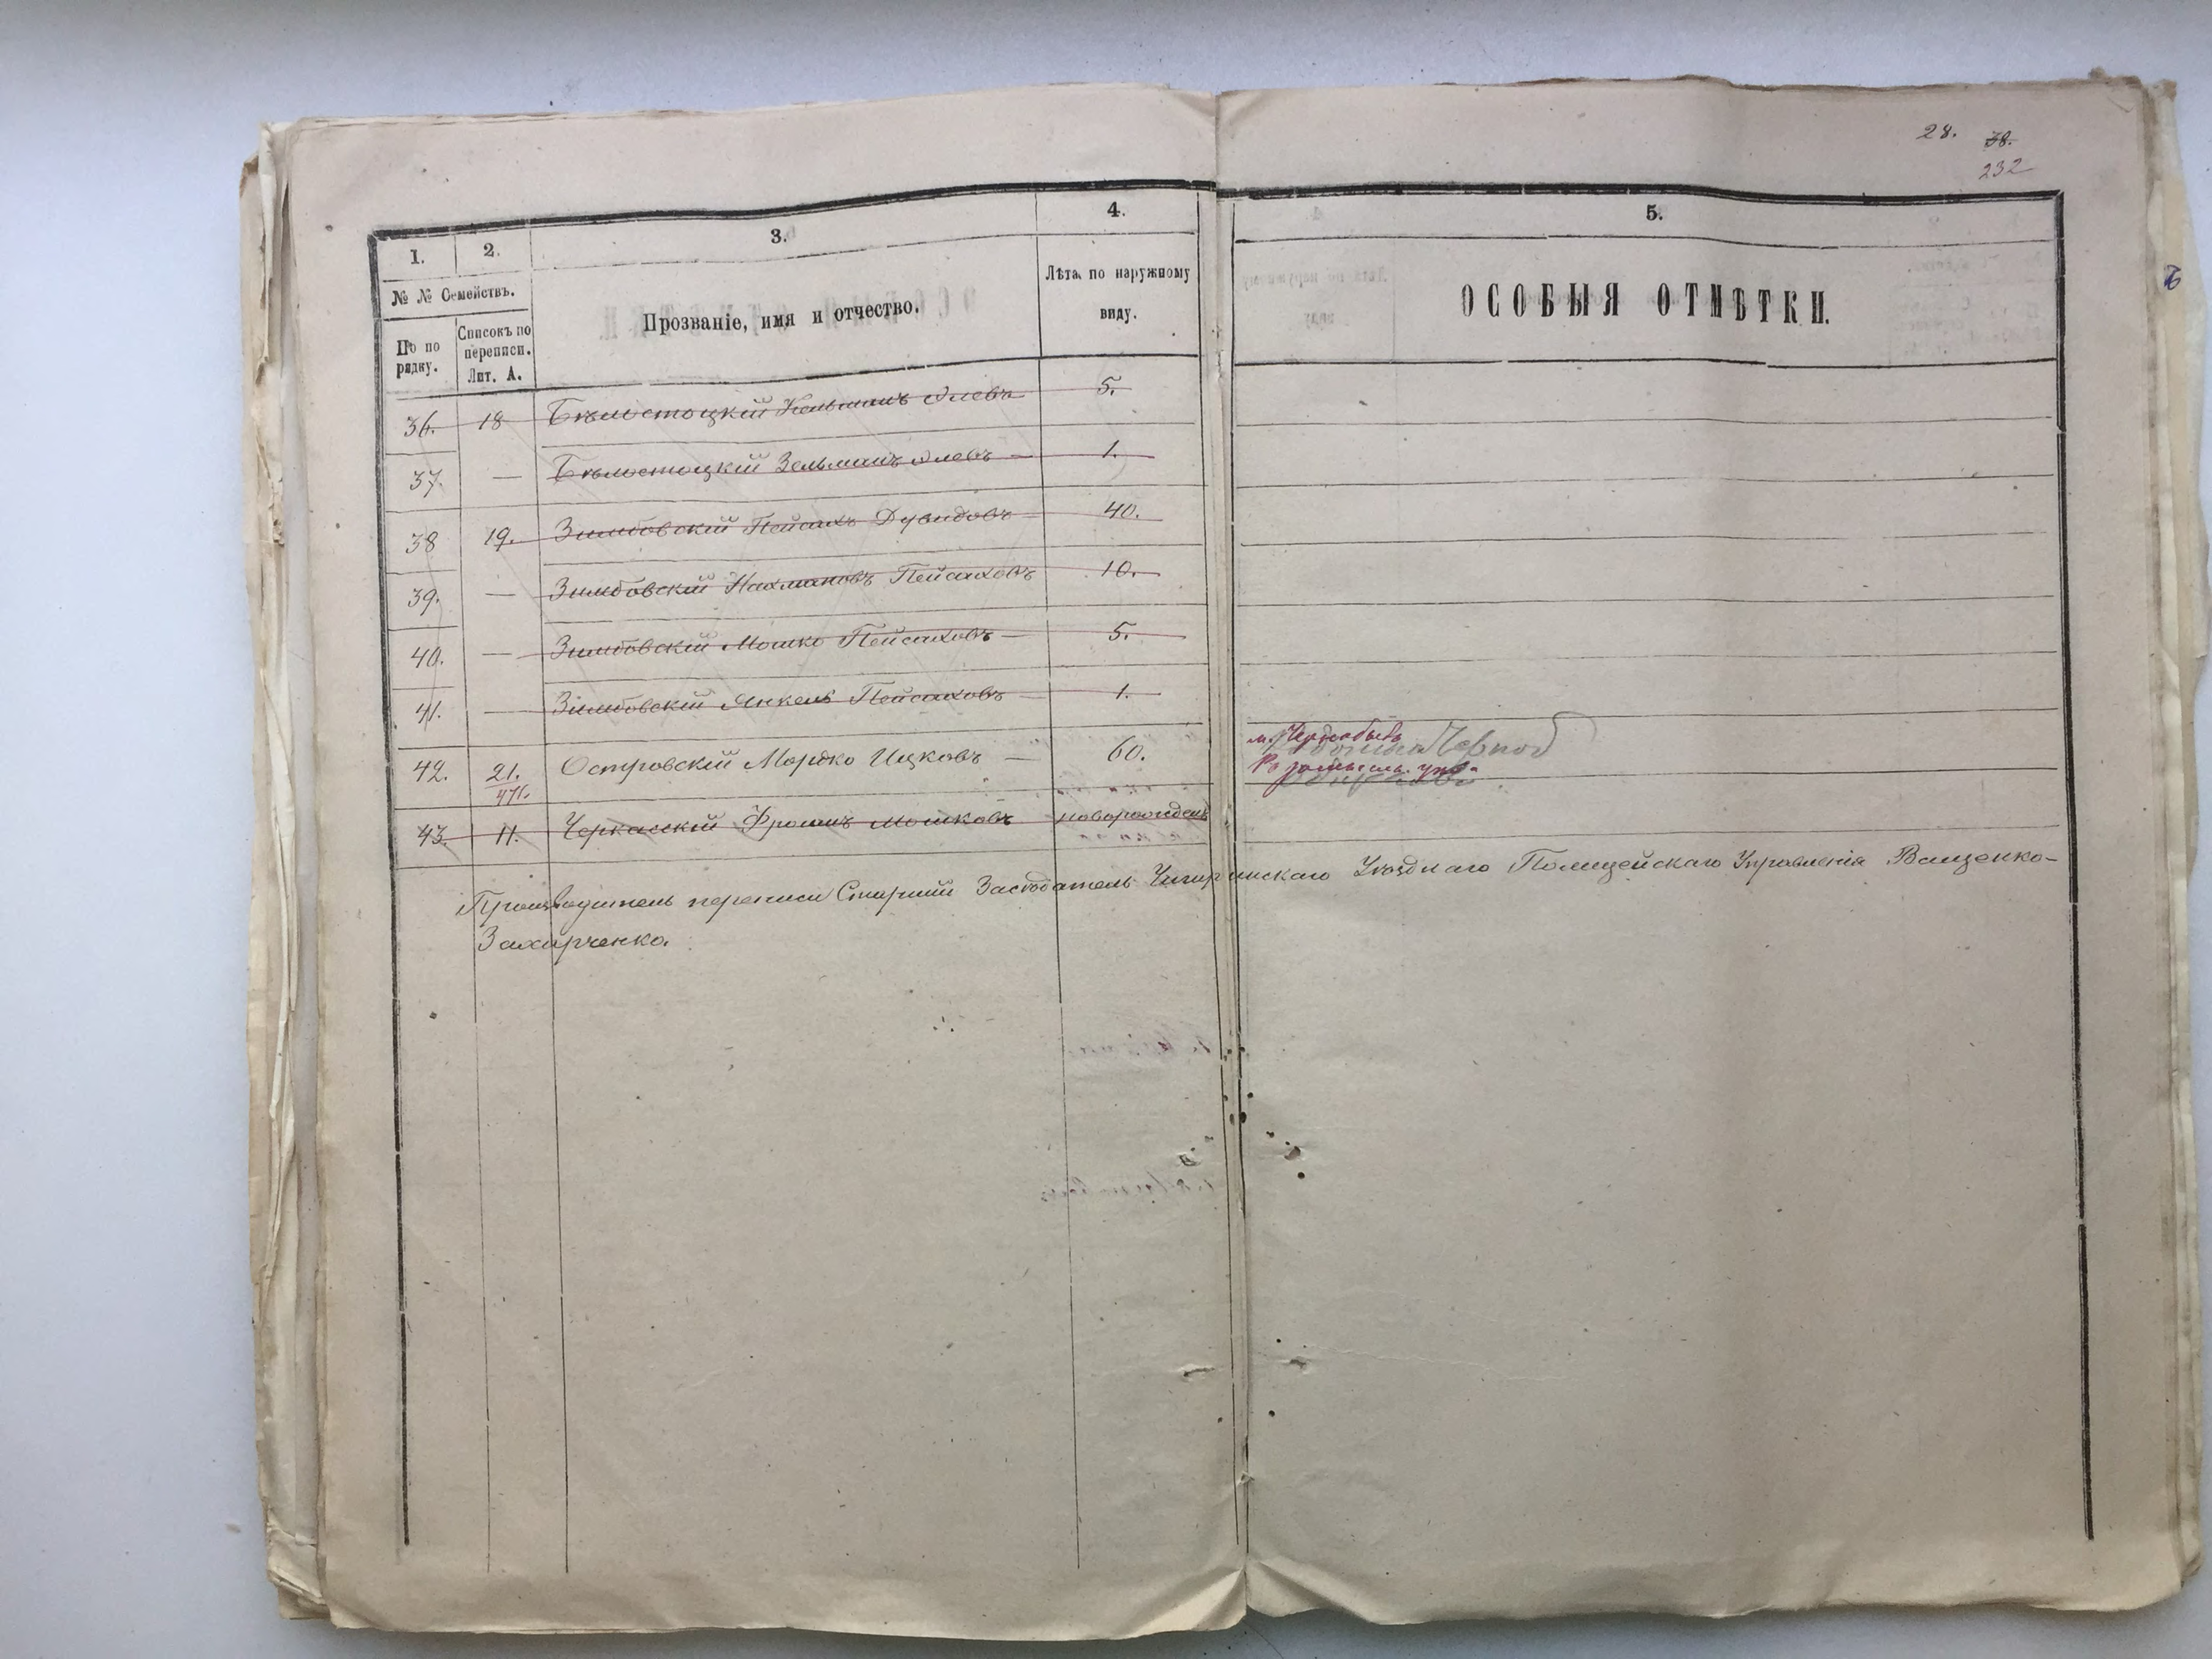 28. 38.
232
1. 2. 3. 4. 5.
№ № Семействъ.
По по рядку.
Списокъ по переписи. Лит. А.
Прозваніе, имя и отчество.
Лѣта по наружному виду.
ОСОБЫЯ ОТМѢТКИ.
36. 18 Бѣлостоцкій Кельманъ 5.
37. — Бѣлостоцкій Зельманъ — 1.
38 19. Зимбовскій Пейсахъ Дувидовъ 40.
39. — Зимбовскій Нахмановъ Пейсаховъ 10.
40. — Зимбовскій Мошко Пейсаховъ — 5.
41. — Зимбовскій Янкель Пейсаховъ — 1.
м. Чернобыль
42. 21. Островскій Мордко Ицковъ — 60.
471.
43. 11. Черкасскій Фроимъ Мошковъ новорожденъ
Производитель переписи Старшій Засѣдатель Чигиринскаго Уѣзднаго Полицейскаго Управленія Ващенко-
Захарченко.